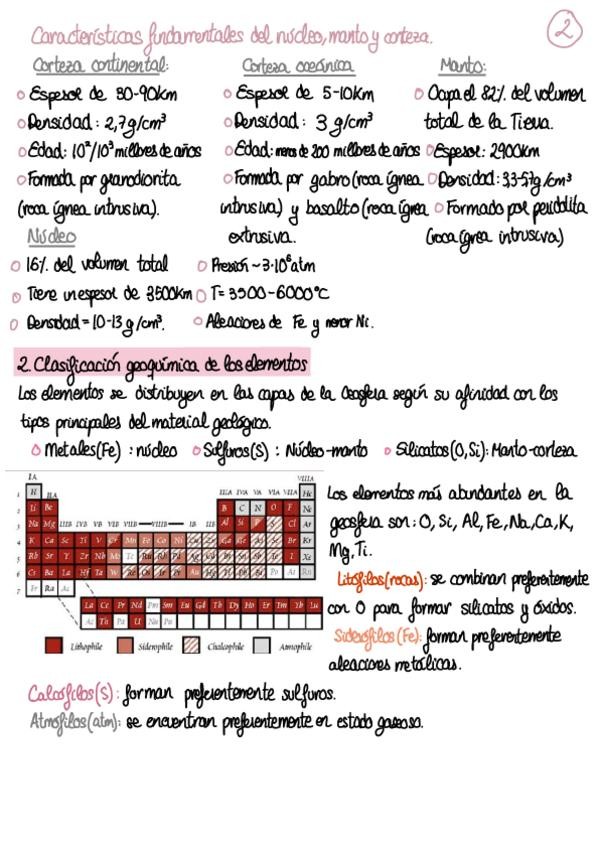 Características fundamentales del núcleo, manto y corteza.
2
Corteza continental:
Espesor de 30-90km
Densidad: 2,7g/cm³
Edad: 10²/10³ millones de años
Formada por granodiorita
(roca ígnea intrusiva).
Corteza oceánica
Espesor de 5-10km
Densidad: 3 g/cm³
Edad: menos de 200 millones de años
Formada por gabro (roca ígnea
intrusiva) y basalto (roca ígnea
extrusiva.
Manto:
Ocupa el 82% del volumen
total de la Tierra.
Espesor: 2900km
Densidad: 3,3-5,7g/cm³
Formado por peridotita
(roca ígnea intrusiva)
Núcleo
16% del volumen total
Tiene un espesor de 3500km
Densidad = 10-13 g/cm³.
Presión ~ 3·10⁶ atm
T= 3900-6000°C
Aleaciones de Fe y menor Ni.
2. Clasificación geoquímica de los elementos
Los elementos se distribuyen en las capas de la Geosfera según su afinidad con los
tipos principales del material geológico.
Metales (Fe) : núcleo
Sulfuros (S) : Núcleo-manto
Silicatos (O, Si): Manto-corteza
IA
VIIIA
1 H IIA IIIA IVA VA VIA VIIA He
2 Li Be B C N O F Ne
3 Na Mg IIIB IVB VB VIB VIIB VIIIB IB IIB Al Si P S Cl Ar
4 K Ca Sc Ti V Cr Mn Fe Co Ni Br Kr
5 Rb Sr Y Zr Nb Mo Tc Ru Rh Pd I Xe
6 Cs Ba La Hf Ta W Re Os Ir Pt Au Po At Rn
7 Fr Ra Ac
La Ce Pr Nd Pm Sm Eu Gd Tb Dy Ho Er Tm Yb Lu
Ac Th Pa U Np Pu
Lithophile Siderophile Chalcophile Atmophile
Los elementos más abundantes en la
geosfera son: O, Si, Al, Fe, Na, Ca, K,
Mg, Ti.
Litófilos (rocas): se combinan preferentemente
con O para formar silicatos y óxidos.
Siderófilos (Fe): forman preferentemente
aleaciones metálicas.
Calcófilos (S): forman preferentemente sulfuros.
Atmófilos (atm): se encuentran preferentemente en estado gaseoso.